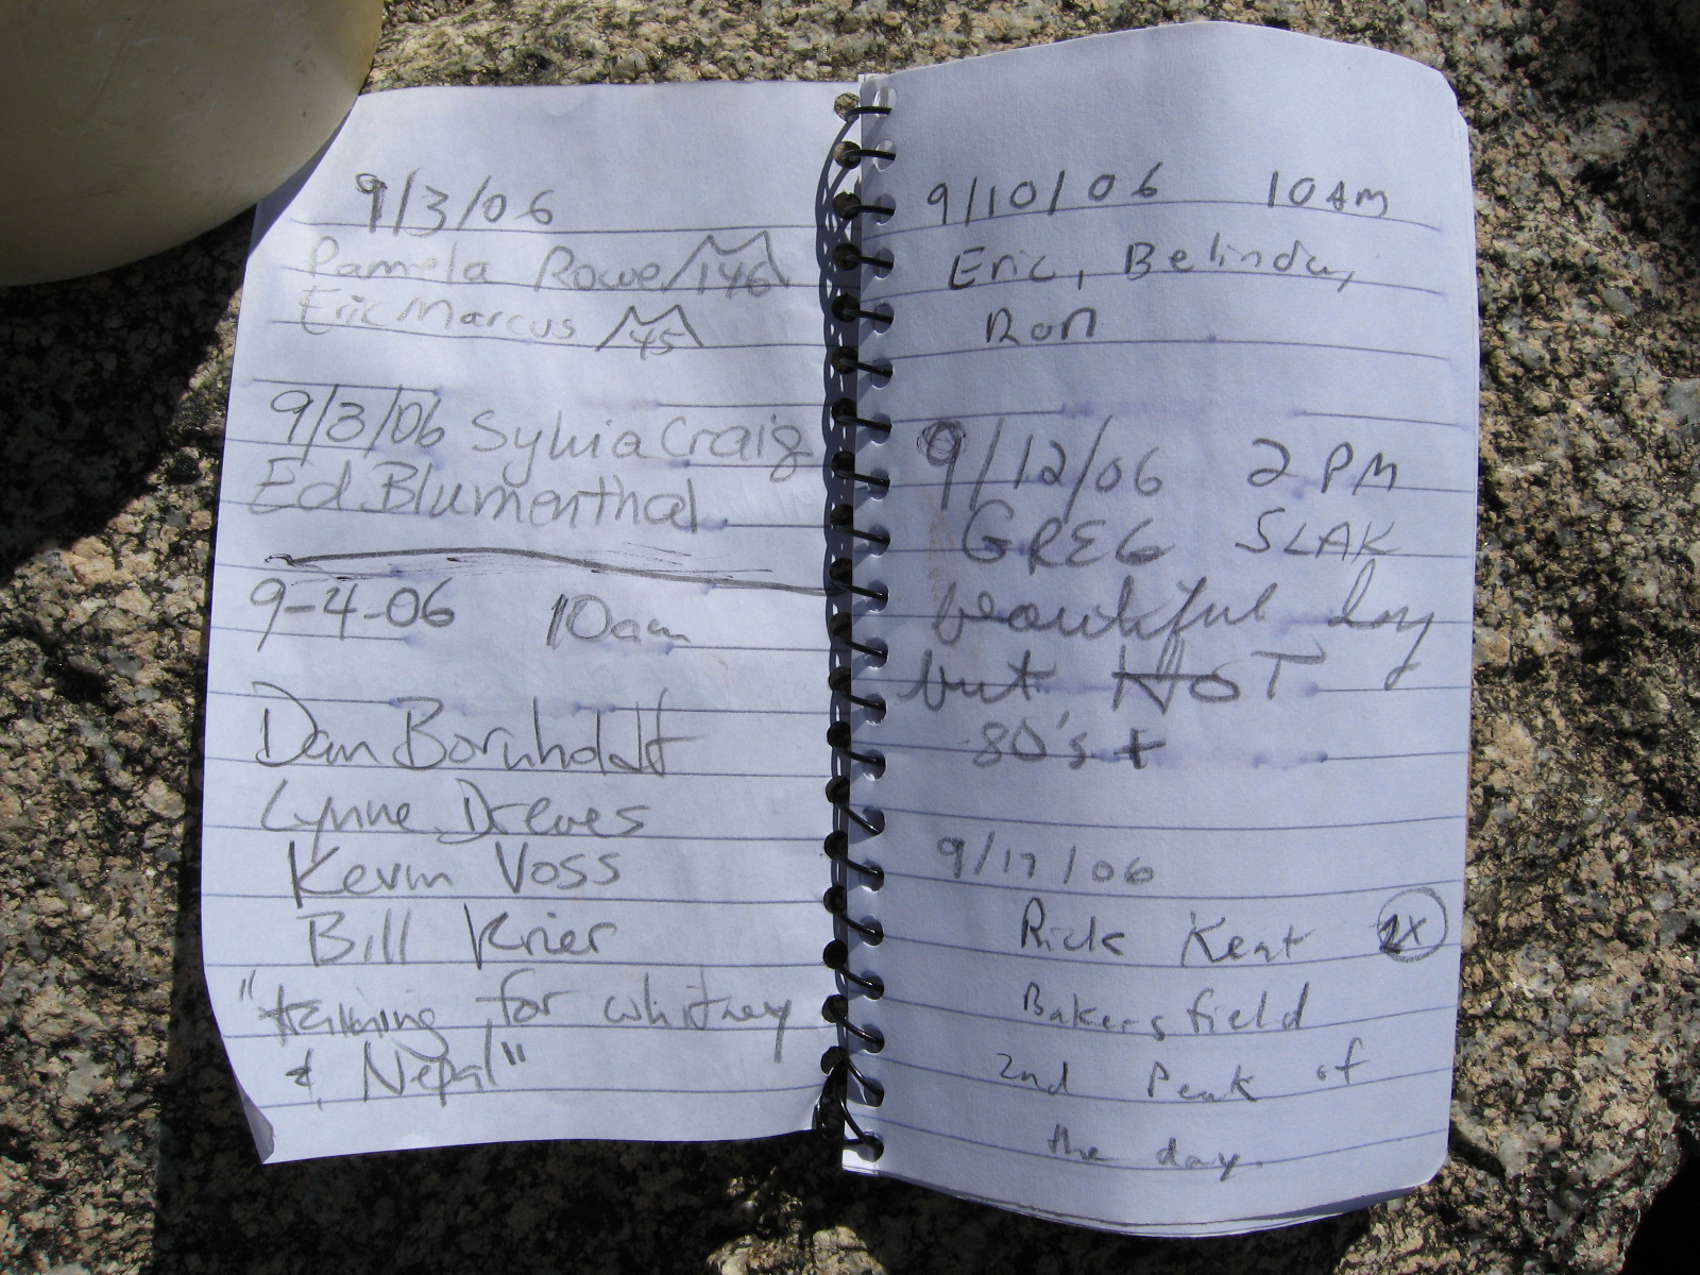 9/3/06
Pamela Rowe 146
Eric Marcus 45
9/3/06 Sylvia Craig
Ed Blumenthal
9-4-06 10am
Dan Bornholdt
Lynne Dreves
Kevin Voss
Bill Krier
"training for whitney
& Nepal"
9/10/06 10 AM
Eric, Belinda,
Ron
9/12/06 2 PM
GREG SLAK
beautiful day
but HOT
80's +
9/17/06
Rick Kent 2X
Bakersfield
2nd Peak of
the day.